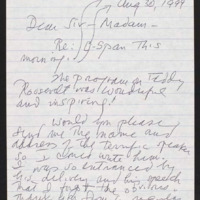 Aug 30, 1999
Dear Sir / Madam -
Re: C-Span This
morning.
The program on Teddy
Roosevelt was wonderful
and inspiring!
Would you please
send me the name and
address of the terrific speaker
so I could write him.
I was so entranced by
his delivery and his speech
that I forgot the obvious.
Thank you